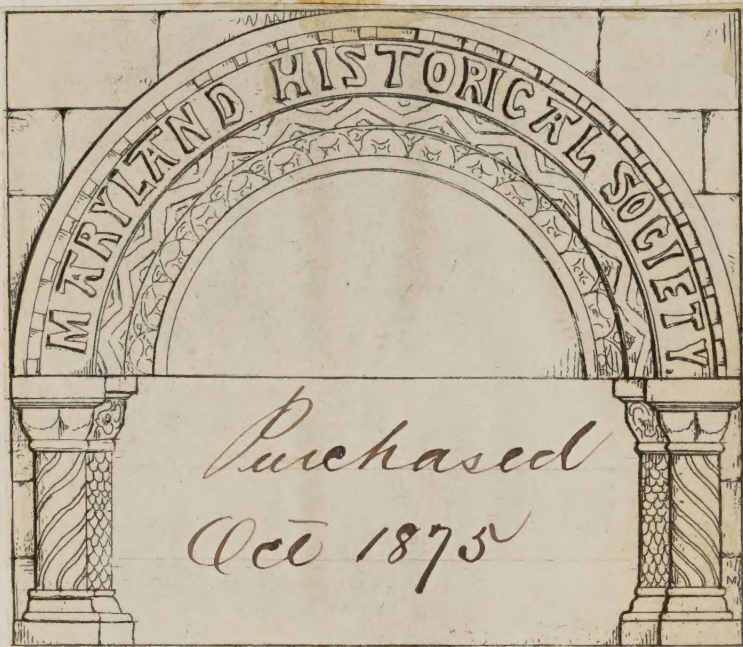 MARYLAND HISTORICAL SOCIETY.
Purchased
Oct 1875